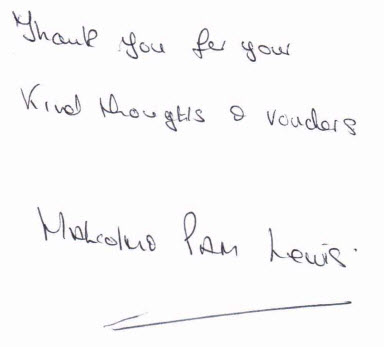 Thank you for your
Kind thoughts & vouchers
Malcolm & Pam Lewis.